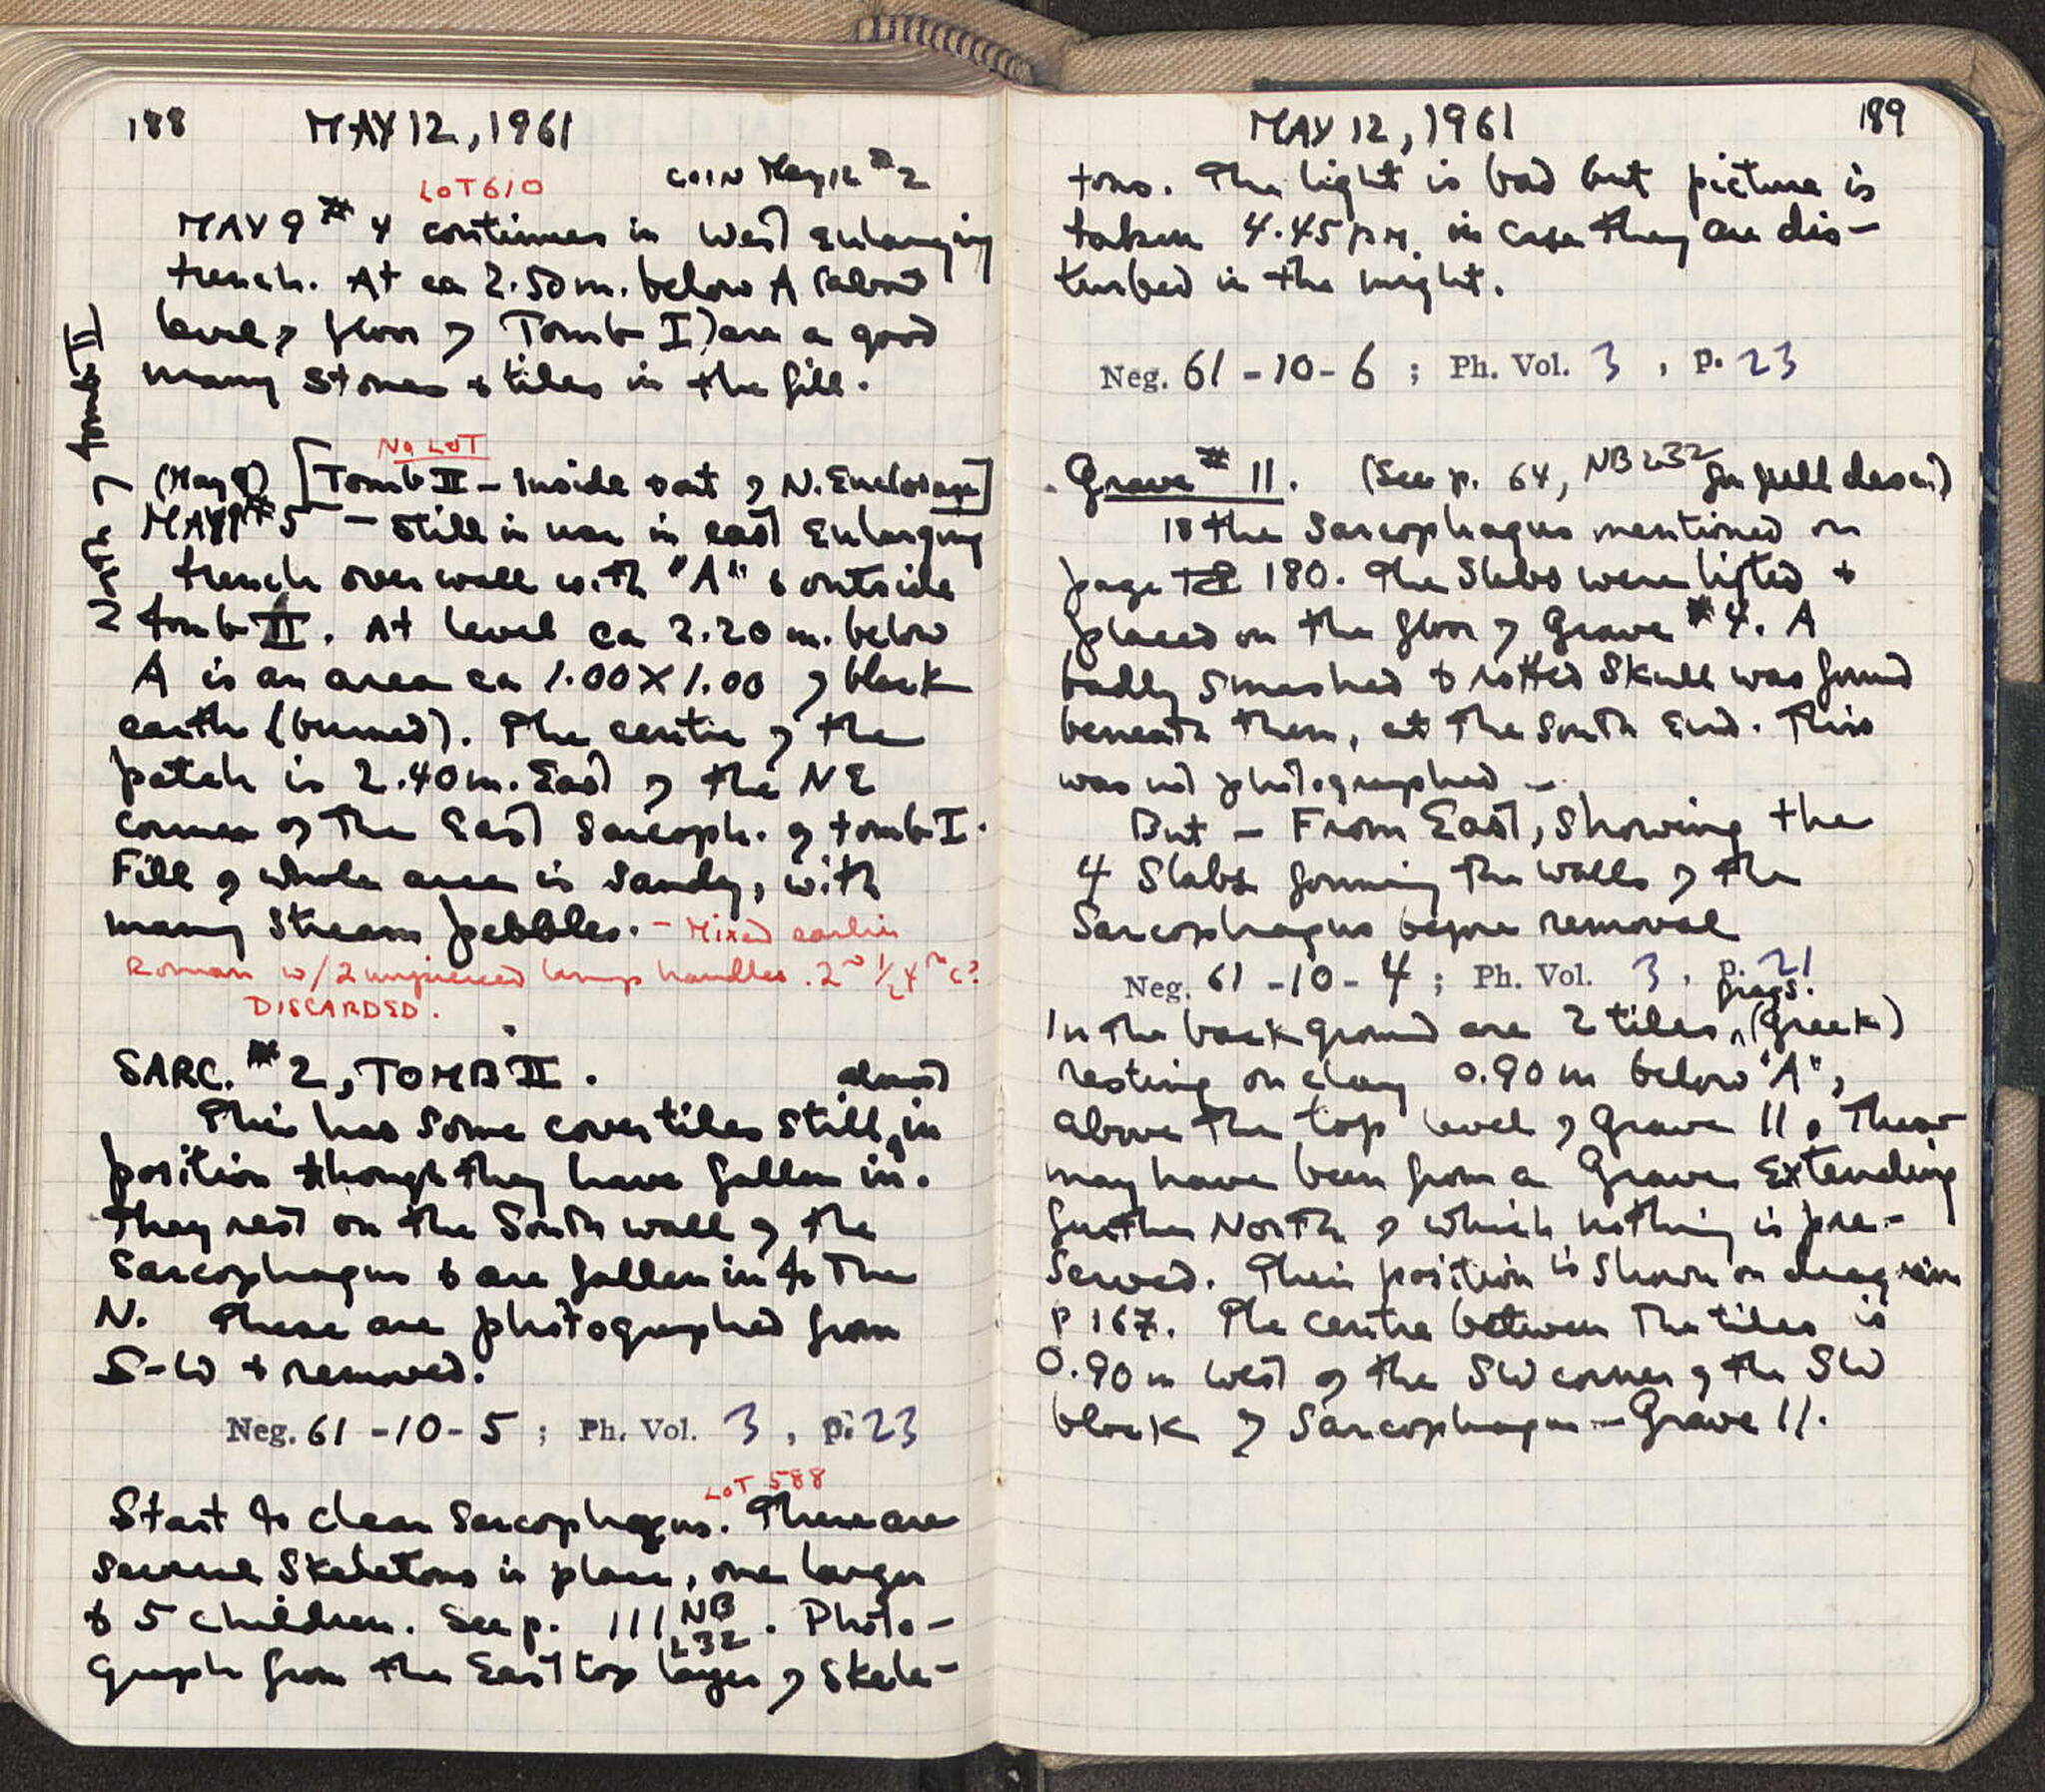 188 MAY 12, 1961
LOT 610 COIN May 12 #2
MAY 9 #4 continues in West enlarging
trench. At ca 2.50 m. below A (about
level of floor of Tomb I) are a good
many stones & tiles in the fill.
No LOT
(May 8) [Tomb II - Inside part of N. Enclosure]
MAY 9 #5 - still in use in east enlarging
trench over wall with "A" & outside
tomb II. At level ca 2.20 m. below
A is an area ca 1.00 X 1.00 of black
earth (burned). The centre of the
patch is 2.40 m. East of the NE
corner of the East Sarcoph. of tomb I.
Fill of whole area is sandy, with
many stream pebbles. - Mixed earlier
Roman w/2 unpierced lamp handles. 2nd 1/2 4th c?
DISCARDED.
North of tomb II
SARC. #2, TOMB II.
almost
This has some cover tiles still, in
position though they have fallen in.
they rest on the South wall of the
Sarcophagus & are fallen in to the
N. These are photographed from
S-W & removed.
Neg. 61 - 10 - 5 ; Ph. Vol. 3 , p. 23
LOT 588
Start to clear Sarcophagus. There are
several Skeletons in place, one larger
& 5 children. See p. 111 NB
232. Photo-
graph from the East top layer of skele-
MAY 12, 1961 189
tons. The light is bad but picture is
taken 4.45 pm. in case they are dis-
turbed in the night.
Neg. 61 - 10 - 6 ; Ph. Vol. 3 , p. 23
Grave #11. (See p. 64, NB 232 for full descri)
is the Sarcophagus mentioned on
page 180. The Slabs were lifted &
placed on the floor of Grave #4. A
badly smashed & rotted Skull was found
beneath them, at the South End. This
was not photographed -.
But - From East, showing the
4 Slabs forming the walls of the
Sarcophagus before removal
Neg. 61 - 10 - 4 ; Ph. Vol. 3 , p. 21
frags.
In the background are 2 tiles, (Greek)
resting on clay 0.90 m below "A",
above the top level of Grave 11. These
may have been from a Grave Extending
further North of which nothing is pre-
served. Their position is shown on diagram
p 167. The centre between the tiles is
0.90 m west of the SW corner of the SW
block of Sarcophagus - Grave 11.